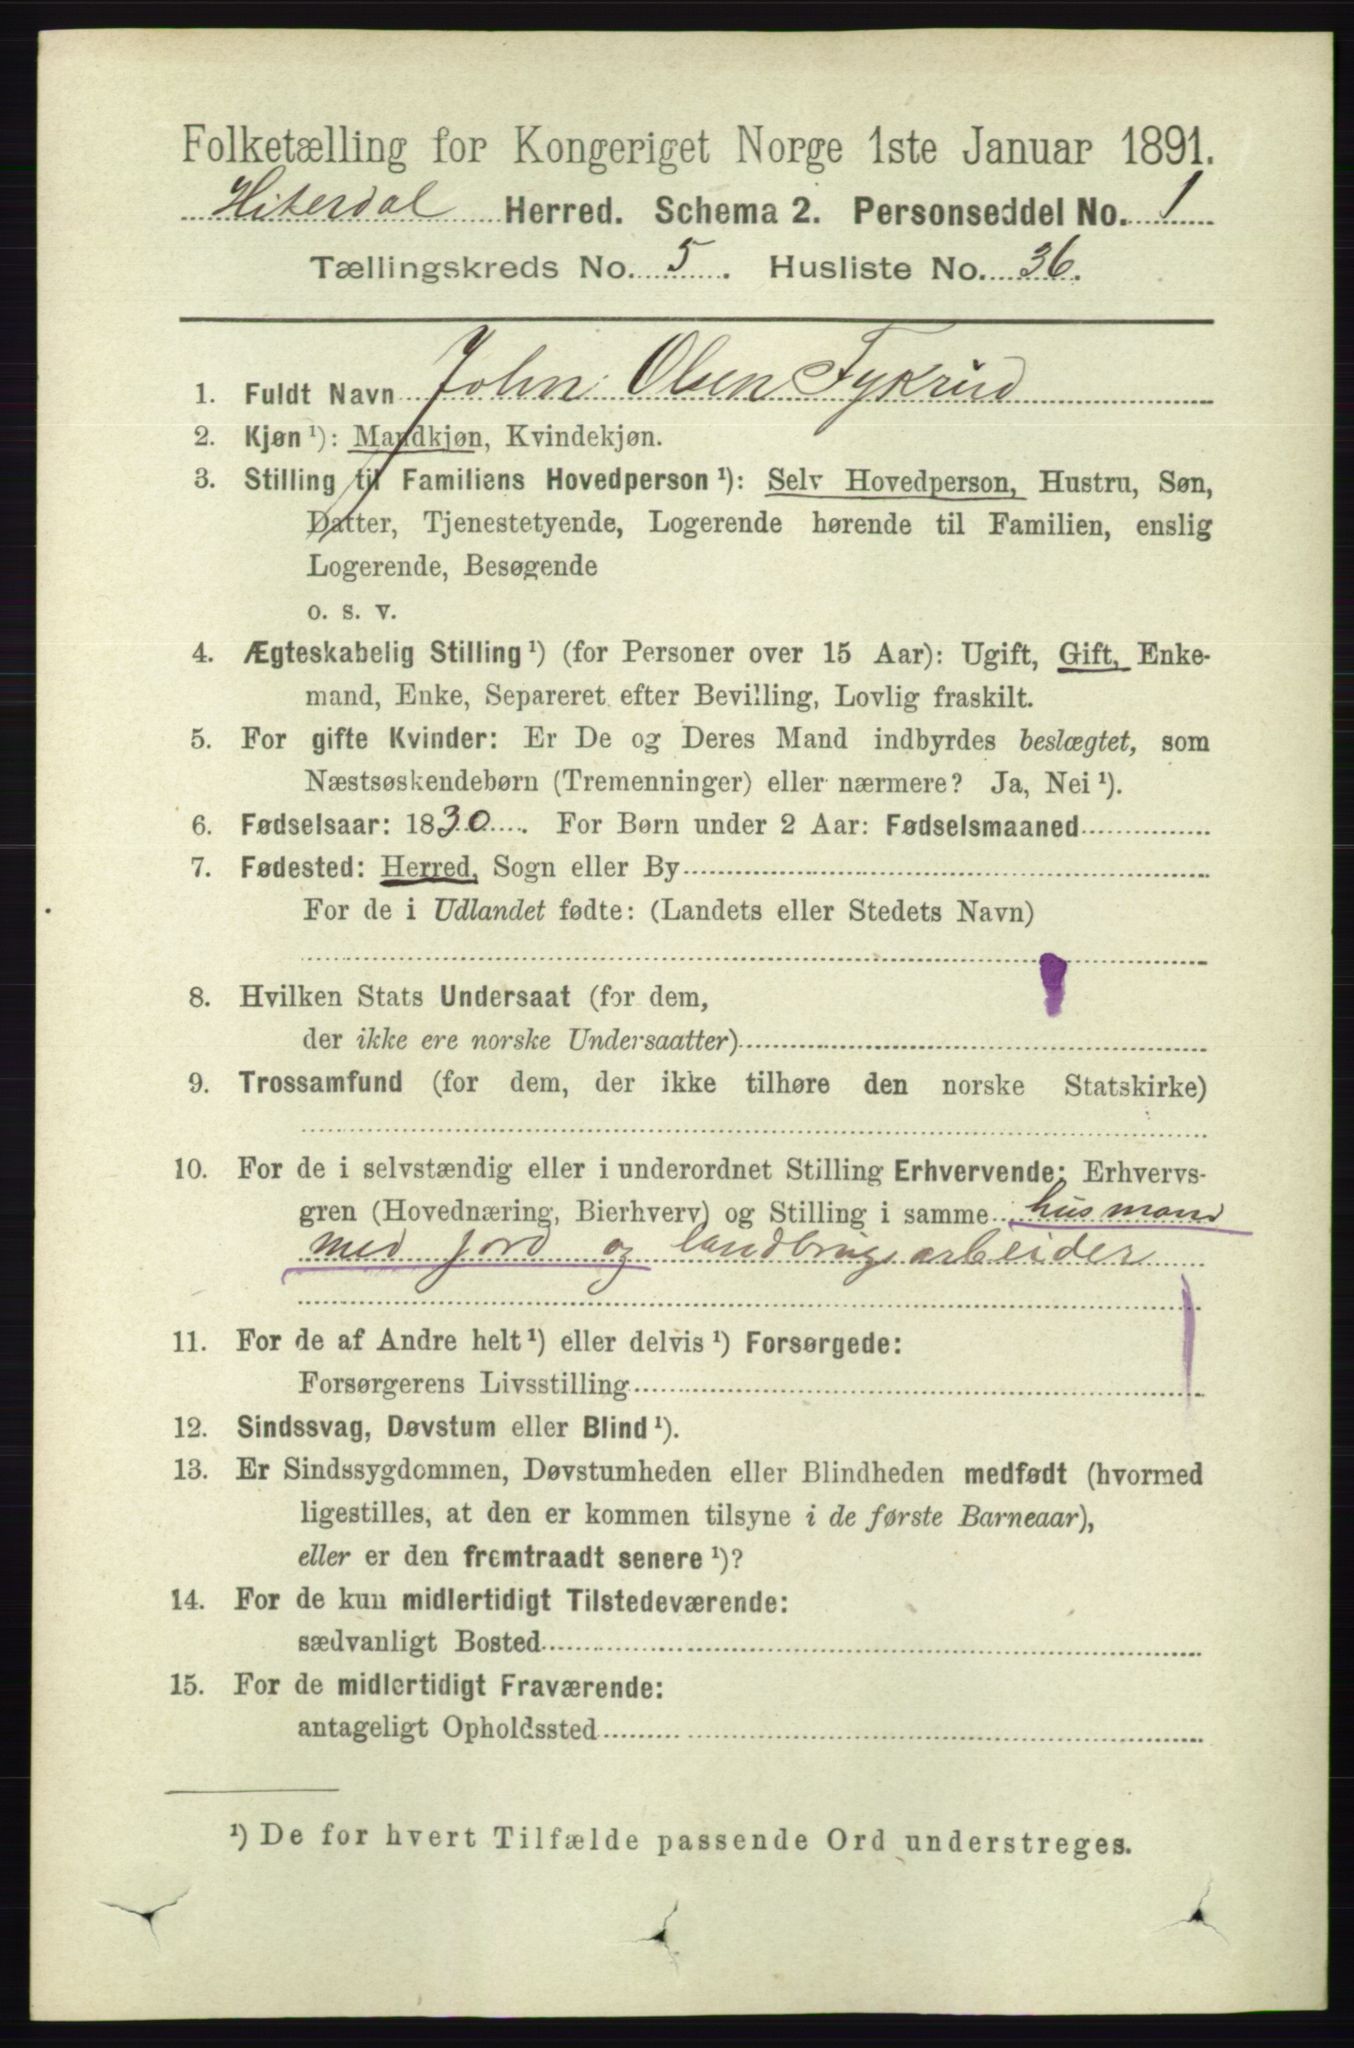 Folketælling for Kongeriget Norge 1ste Januar 1891.
Hiterdal Herred. Schema 2. Personseddel No. 1
Tællingskreds No. 5. Husliste No. 36.
1. Fuldt Navn John Olsen Tykrud
2. Kjøn ¹): Mandkjøn, Kvindekjøn.
3. Stilling til Familiens Hovedperson ¹): Selv Hovedperson, Hustru, Søn,
Datter, Tjenestetyende, Logerende hørende til Familien, enslig
Logerende, Besøgende
o. s. v.
4. Ægteskabelig Stilling ¹) (for Personer over 15 Aar): Ugift, Gift, Enke-
mand, Enke, Separeret efter Bevilling, Lovlig fraskilt.
5. For gifte Kvinder: Er De og Deres Mand indbyrdes beslægtet, som
Næstsøskendebørn (Tremenninger) eller nærmere? Ja, Nei ¹).
6. Fødselsaar: 1830. For Børn under 2 Aar: Fødselsmaaned
7. Fødested: Herred, Sogn eller By
For de i Udlandet fødte: (Landets eller Stedets Navn)
8. Hvilken Stats Undersaat (for dem,
der ikke ere norske Undersaatter)
9. Trossamfund (for dem, der ikke tilhøre den norske Statskirke)
10. For de i selvstændig eller i underordnet Stilling Erhvervende: Erhvervs-
gren (Hovednæring, Bierhverv) og Stilling i samme husmand
med jord og landbrugsarbeider
11. For de af Andre helt ¹) eller delvis ¹) Forsørgede:
Forsørgerens Livsstilling
12. Sindssvag, Døvstum eller Blind ¹).
13. Er Sindssygdommen, Døvstumheden eller Blindheden medfødt (hvormed
ligestilles, at den er kommen tilsyne i de første Barneaar),
eller er den fremtraadt senere ¹)?
14. For de kun midlertidigt Tilstedeværende:
sædvanligt Bosted
15. For de midlertidigt Fraværende:
antageligt Opholdssted
¹) De for hvert Tilfælde passende Ord understreges.